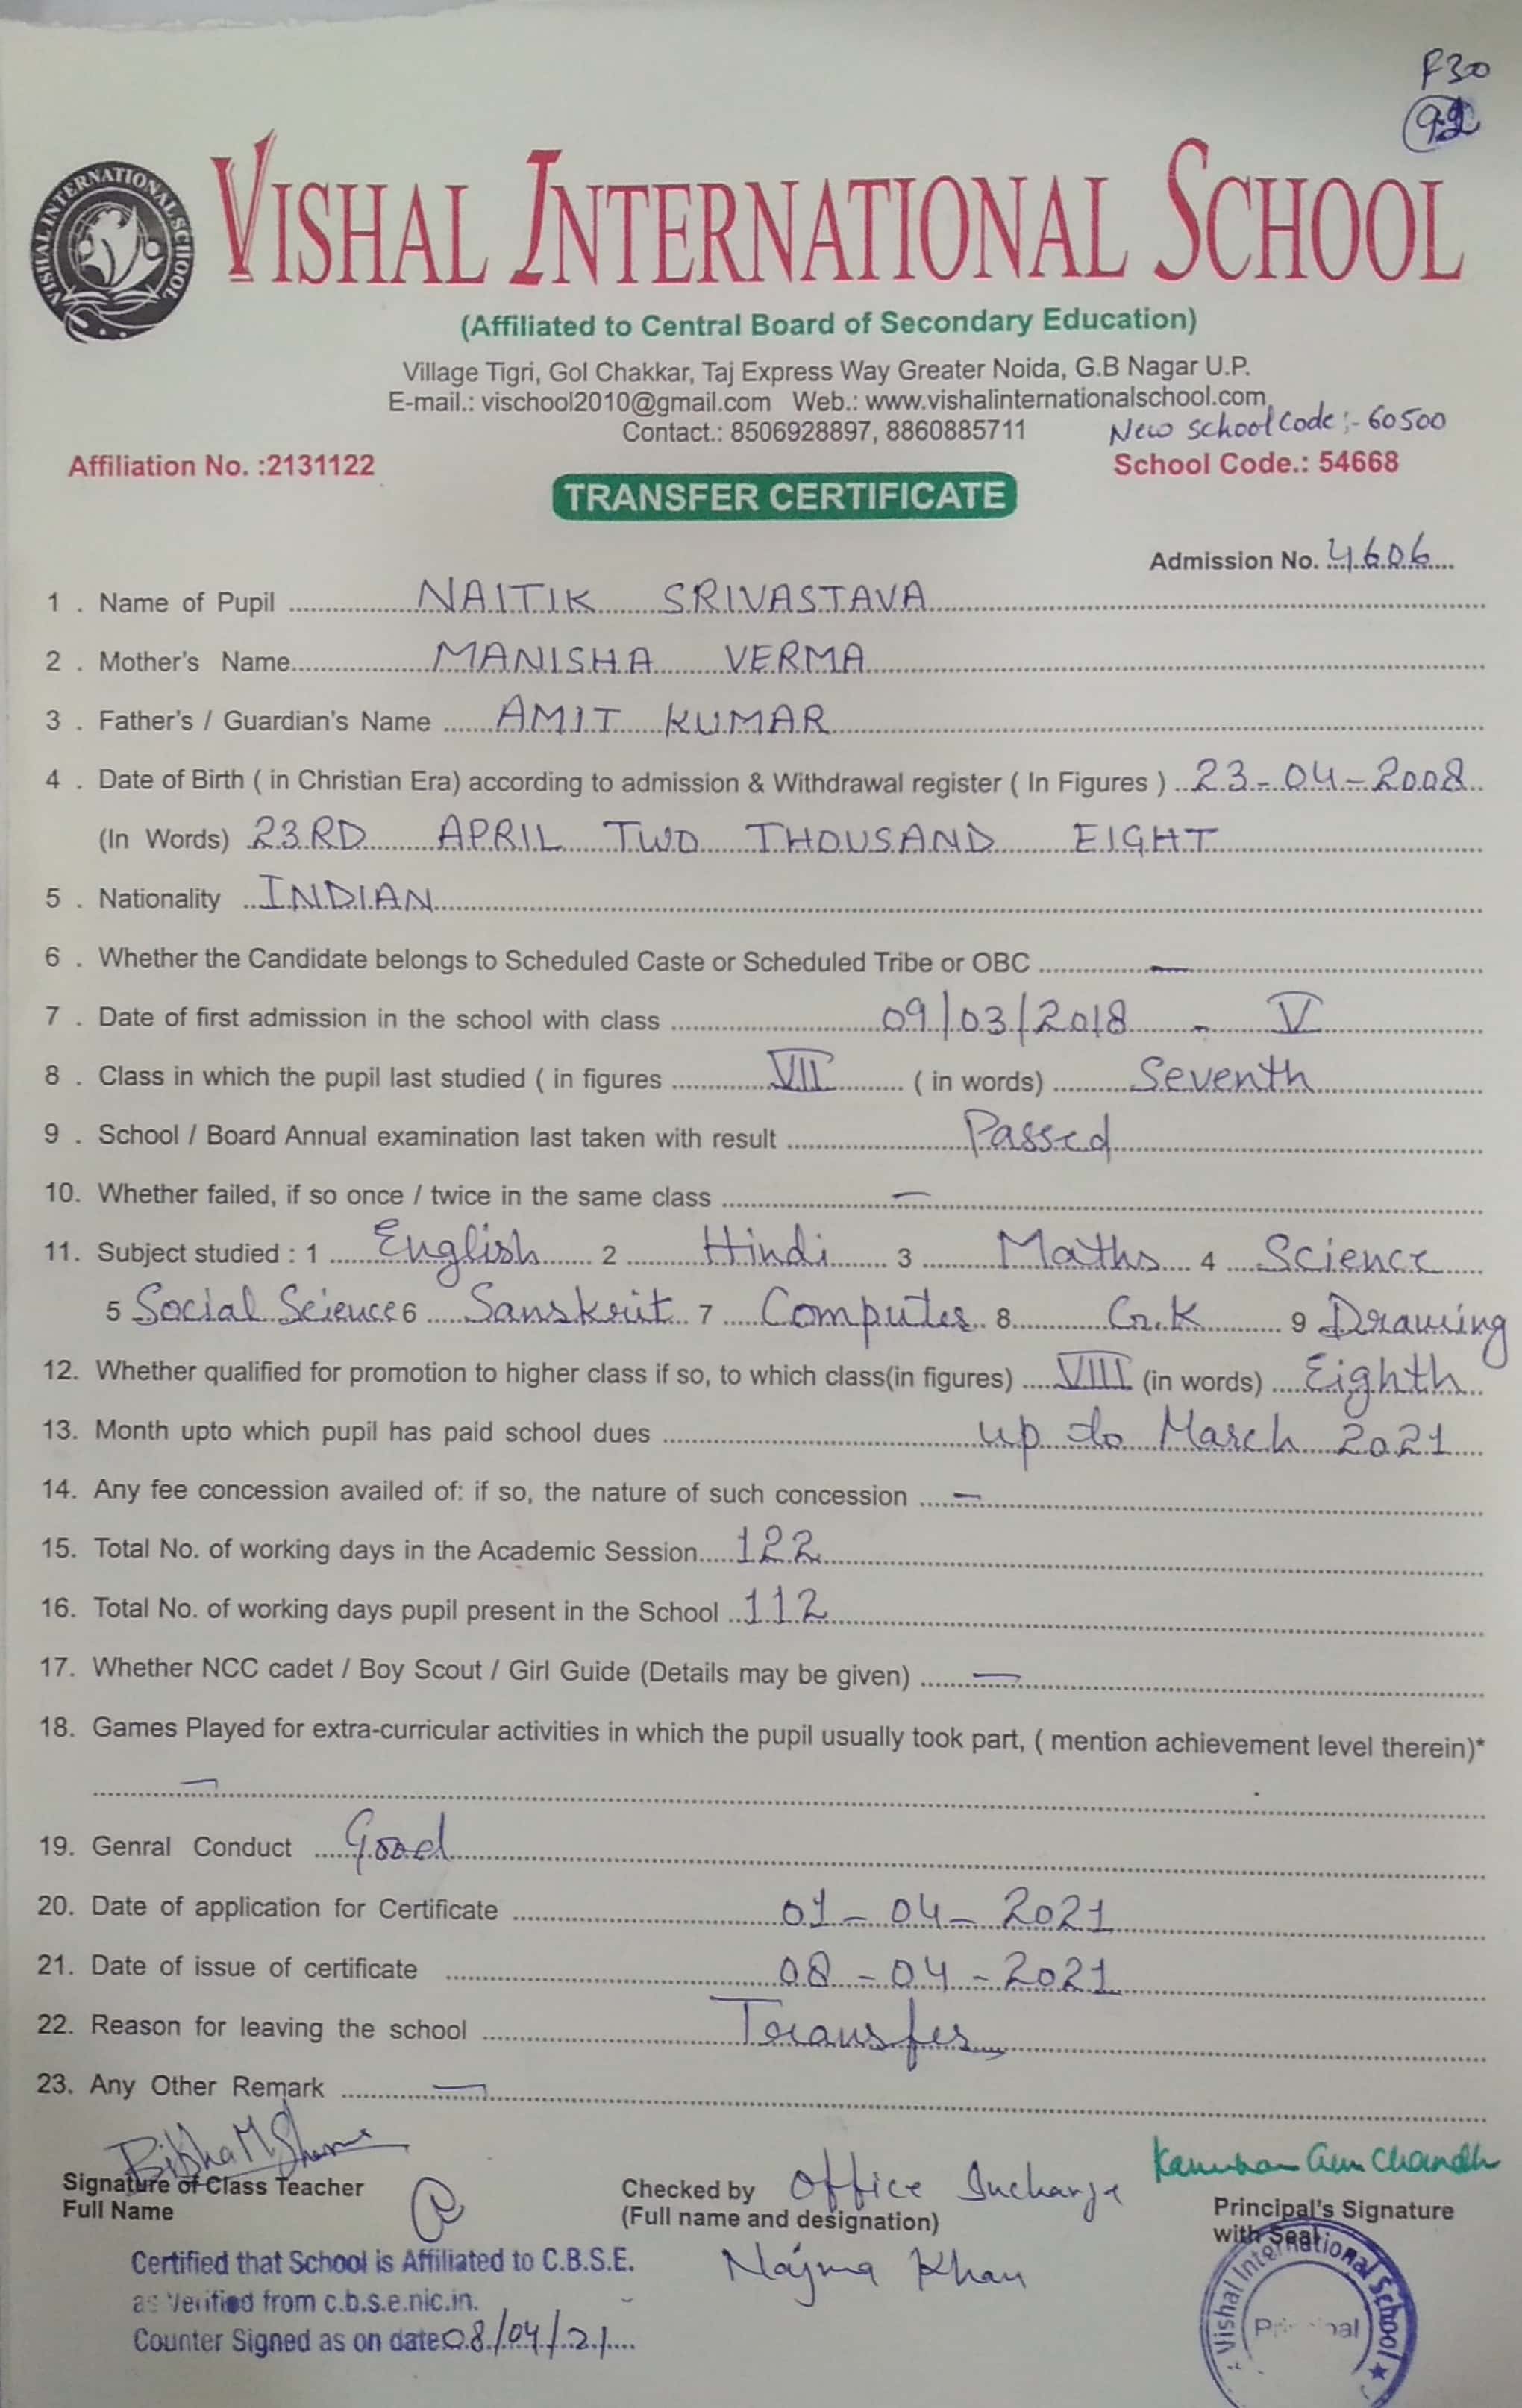 F30
92
VISHAL INTERNATIONAL SCHOOL
VISHAL INTERNATIONAL SCHOOL
(Affiliated to Central Board of Secondary Education)
Village Tigri, Gol Chakkar, Taj Express Way Greater Noida, G.B Nagar U.P.
E-mail.: vischool2010@gmail.com Web.: www.vishalinternationalschool.com
Contact.: 8506928897, 8860885711 New School Code :- 60500
Affiliation No. :2131122 School Code.: 54668
TRANSFER CERTIFICATE
Admission No. 4606
1 . Name of Pupil NAITIK SRIVASTAVA
2 . Mother's Name MANISHA VERMA
3 . Father's / Guardian's Name AMIT KUMAR
4 . Date of Birth ( in Christian Era) according to admission & Withdrawal register ( In Figures ) 23-04-2008
(In Words) 23RD APRIL TWO THOUSAND EIGHT
5 . Nationality INDIAN
6 . Whether the Candidate belongs to Scheduled Caste or Scheduled Tribe or OBC —
7 . Date of first admission in the school with class 09/03/2018 - V
8 . Class in which the pupil last studied ( in figures VII ( in words) Seventh
9 . School / Board Annual examination last taken with result Passed
10. Whether failed, if so once / twice in the same class —
11. Subject studied : 1 English 2 Hindi 3 Maths 4 Science
5 Social Science 6 Sanskrit 7 Computer 8 G.K 9 Drawing
12. Whether qualified for promotion to higher class if so, to which class(in figures) VIII (in words) Eighth
13. Month upto which pupil has paid school dues up to March 2021
14. Any fee concession availed of: if so, the nature of such concession —
15. Total No. of working days in the Academic Session 122
16. Total No. of working days pupil present in the School 112
17. Whether NCC cadet / Boy Scout / Girl Guide (Details may be given) —
18. Games Played for extra-curricular activities in which the pupil usually took part, ( mention achievement level therein)*
—
19. Genral Conduct Good
20. Date of application for Certificate 01-04-2021
21. Date of issue of certificate 08-04-2021
22. Reason for leaving the school Transfer
23. Any Other Remark —
Signature of Class Teacher Checked by Office Incharge Principal's Signature
Full Name (Full name and designation) with Seal
Najma Khan
Certified that School is Affiliated to C.B.S.E.
as Verified from c.b.s.e.nic.in.
Counter Signed as on date 08/04/21
Vishal International School
Principal